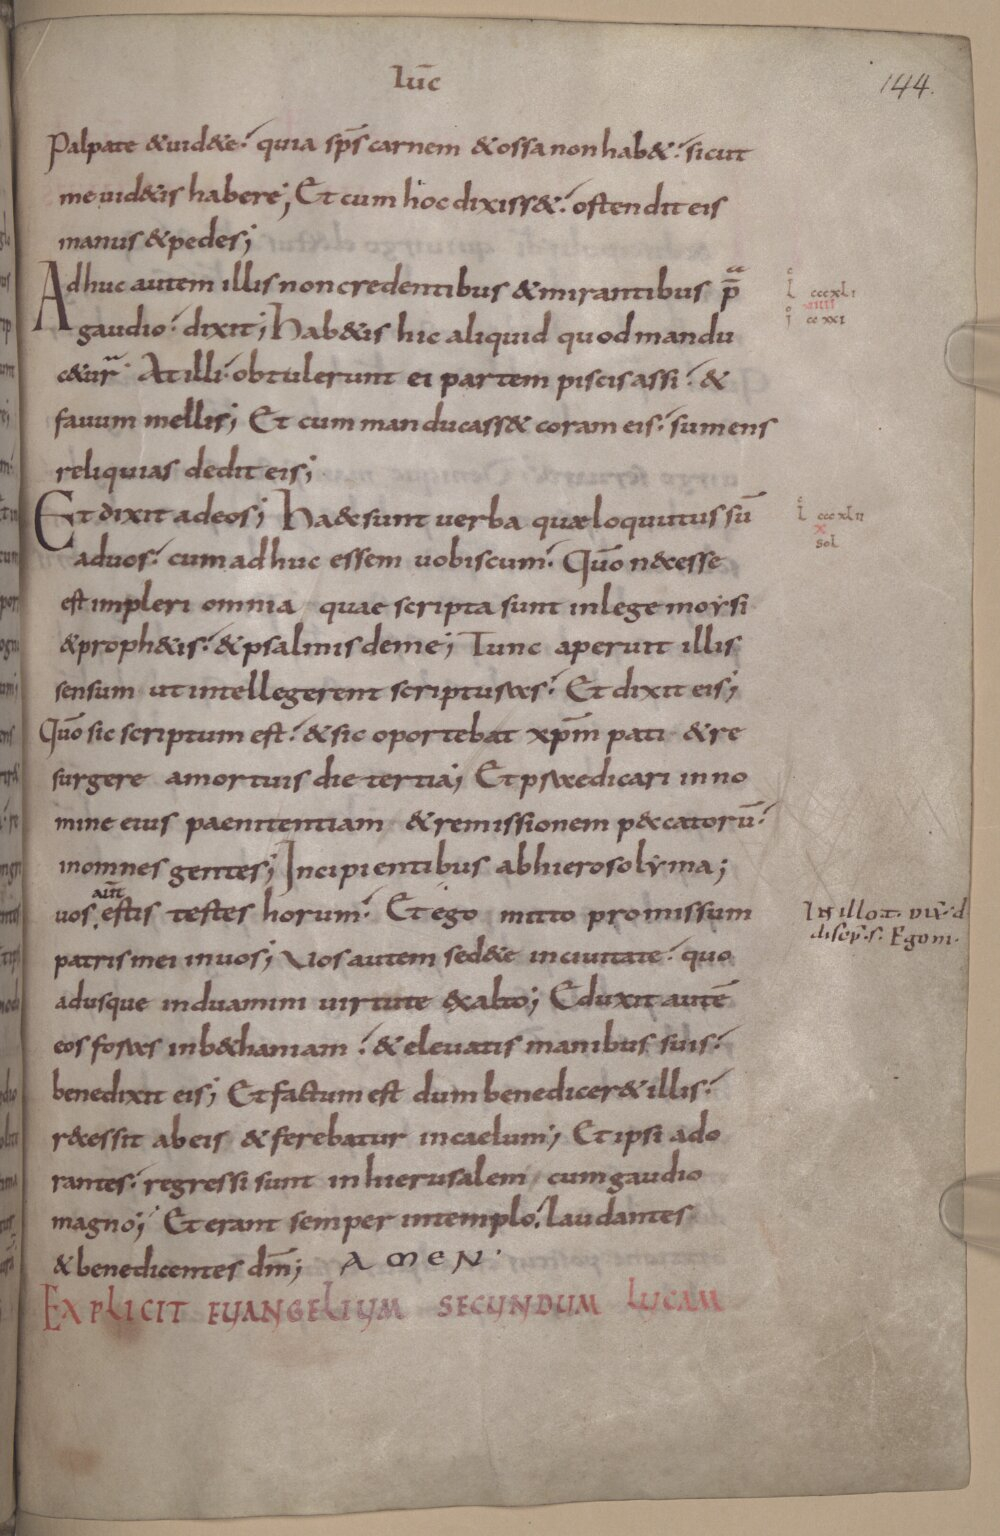 Luc̄
144.
Palpate &uid&e. quia sp̄s carnem &ossa non hab&. sicut
me uid&is habere; Et cum hoc dixiss&. ostendit eis
manus &pedes;
Adhuc autem illis non credentibus &mirantibus p̄
gaudio. dixit; Hab&is hic aliquid quod mandu
c&ur At illi obtulerunt ei partem piscis assi. &
fauum mellis; Et cum manducass& coram eis. sumens
reliquias dedit eis;
Et dixit ad eos; Haec sunt uerba quae loquutus sū
ad uos. cum adhuc essem uobiscum. Quō necesse
est impleri omnia quae scripta sunt in lege moysi
&proph&is. &psalmis de me; Tunc aperuit illis
sensum ut intellegerent scripturas. Et dixit eis;
Quō sic scriptum est. &sic oportebat xp̄m pati &re
surgere a mortuis die tertia; Et praedicari in no
mine eius paenitentiam &remissionem peccatorū.
in omnes gentes; Incipientibus ab hierosolyma;
uos aūt estis testes horum. Et ego mitto promissum
patris mei in uos; Vos autem sed&e in ciuitate. quo
adusque induamini uirtute ex alto; Eduxit autē
eos foras in b&haniam. &eleuatis manibus suis.
benedixit eis; Et factum est dum benedicer& illis.
recessit ab eis &ferebatur in caelum; Et ipsi ado
rantes. regressi sunt in hierusalem cum gaudio
magno; Et erant semper in templo. laudantes
&benedicentes dm̄; AMEN.
EXPLICIT EUANGELIUM SECUNDUM LUCAM
L cccxLi
L cccxLii
x
sol